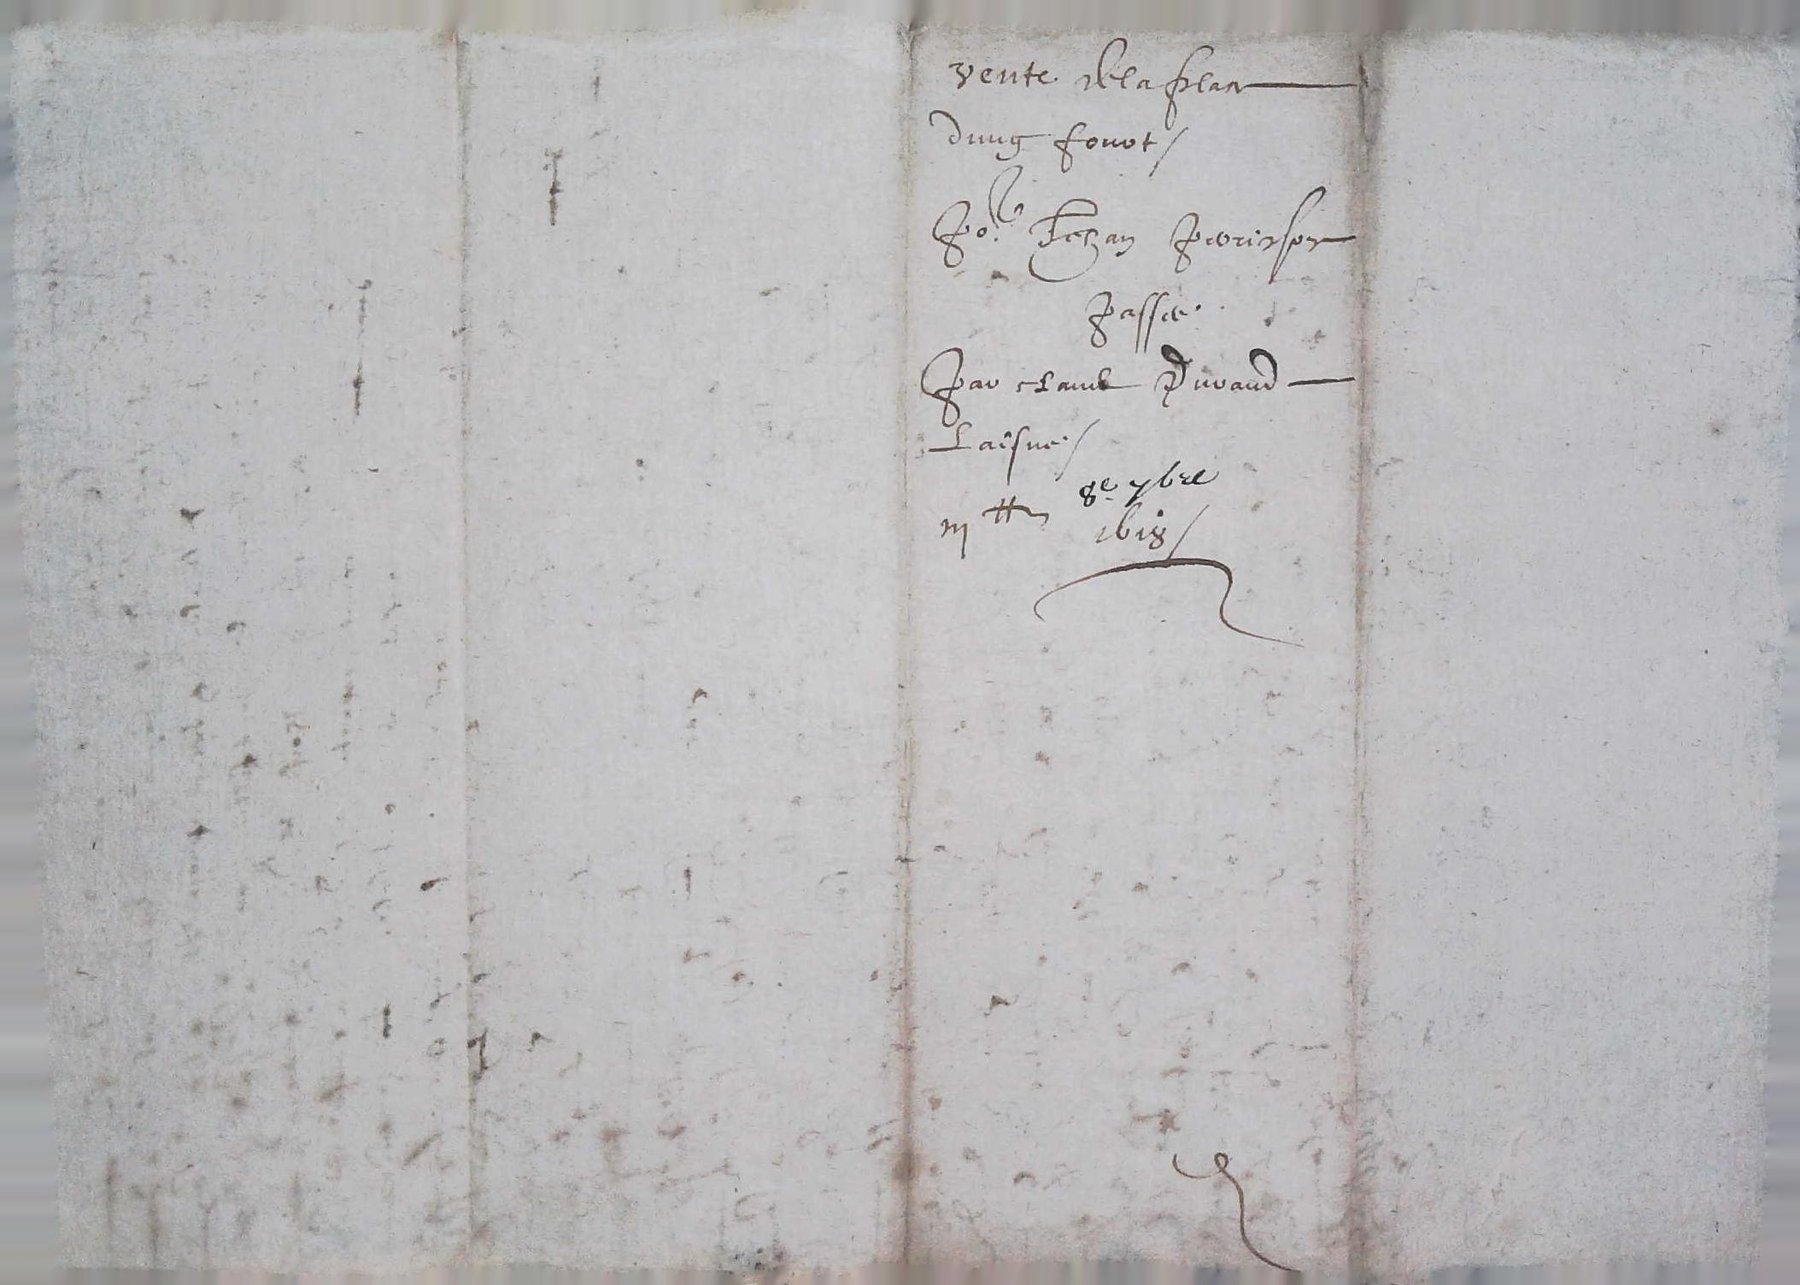 vente de la plac
dung fouot
Po.r Jehan
passee
Par claude Durand
Laisne
8e 7bre
iii tt 1618